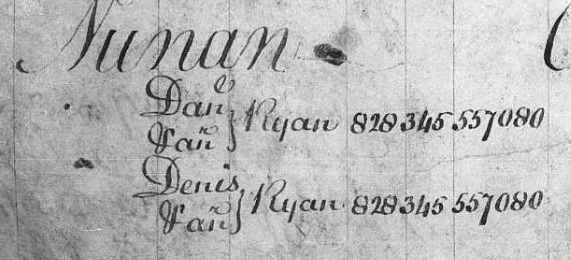 Nunan
Danˡ
} Ryan 828 345 557080
Denis
} Ryan 828 345 557080